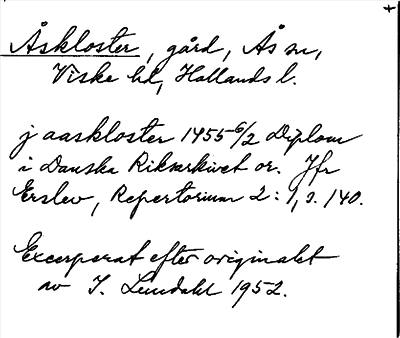 Åskloster, gård, Ås sn,
Viske hd, Hallands l.
j aaskloster 1455 6/2 Diplom
i Danska Riksarkivet or. Jfr
Erslev, Repertorium 2:1, s. 140.
Excerperat efter originalet
av I. Lundahl 1952.